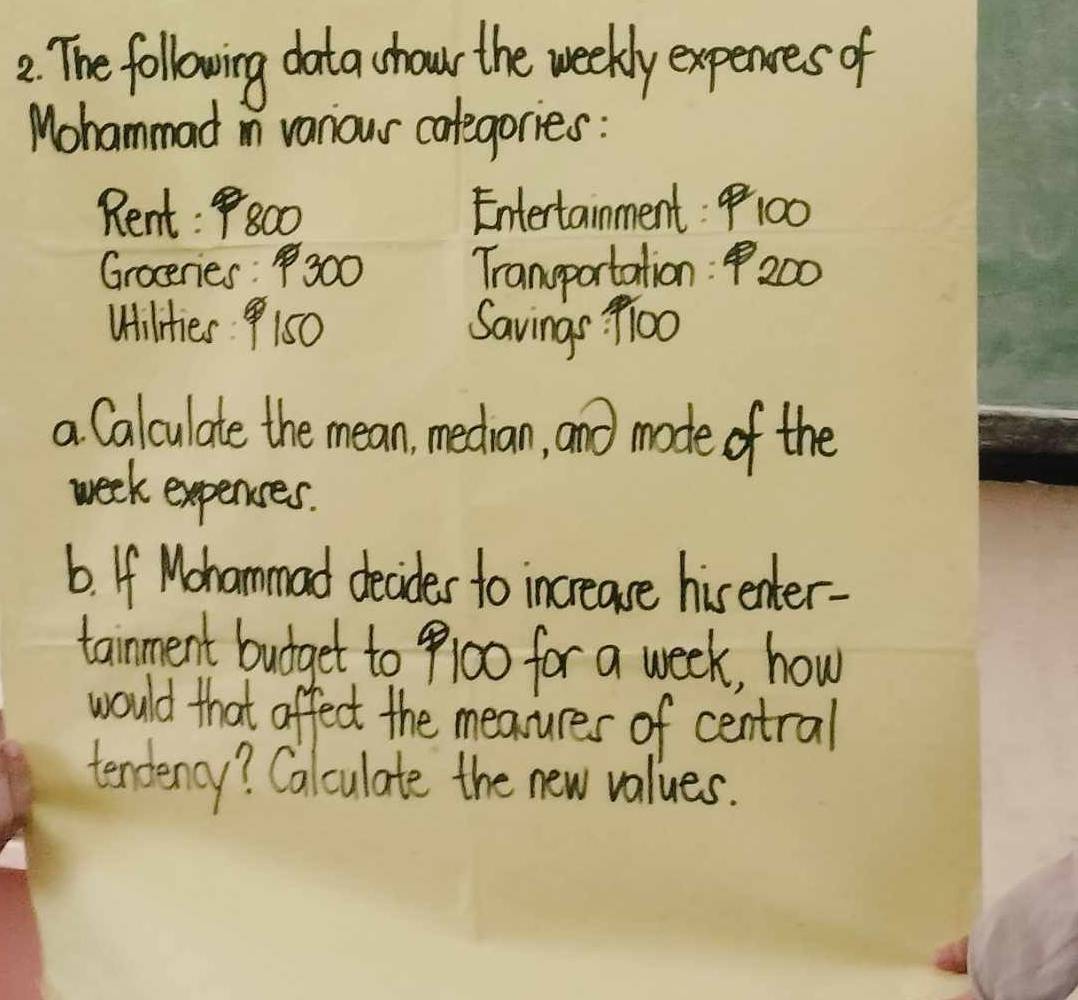 2. The following data shows the weekly expenses of
Mohammad in various categories:
Rent : ₱800
Entertainment : ₱100
Groceries : ₱300
Transportation : ₱200
Utilities : ₱150
Savings : ₱100
a. Calculate the mean, median, and mode of the
week expenses.
b. If Mohammad decides to increase his enter-
tainment budget to ₱100 for a week, how
would that affect the measures of central
tendency? Calculate the new values.